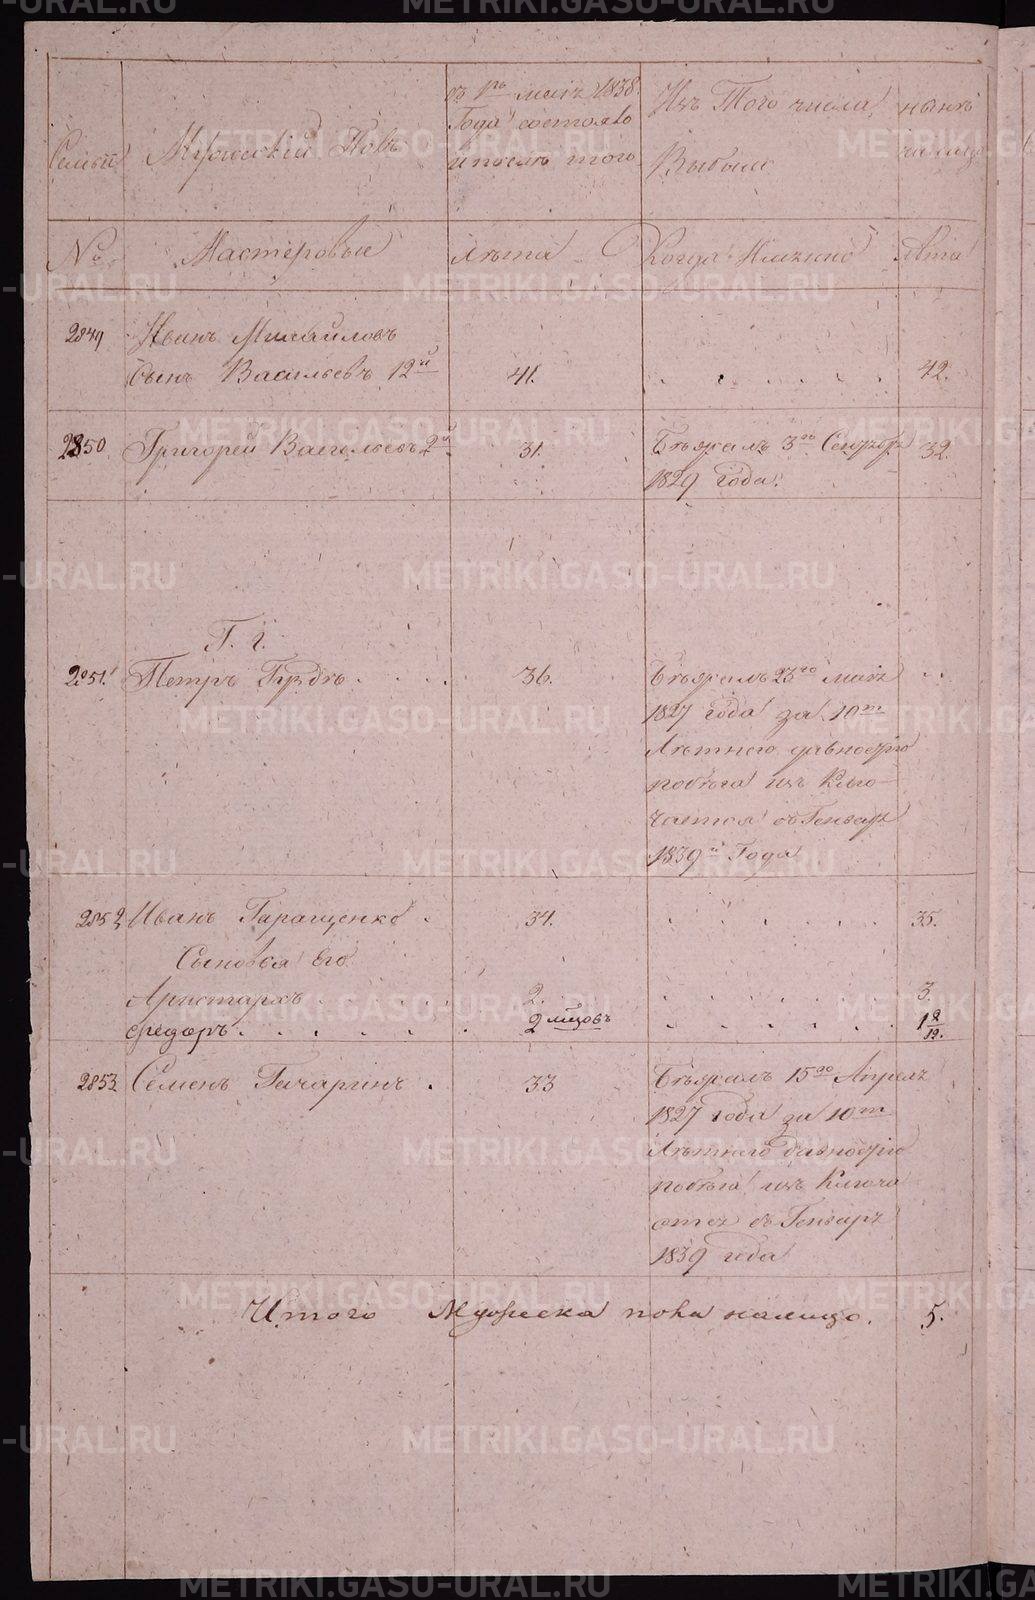 METRIKI.GASO-URAL.RU
Семьи Мужеский Полъ
съ 1го маія 1838
Года состояло
и после того
Изъ Того числа
Выбыло
ныне
на лицо
№ Мастеровые Лѣта Когда Имянно Лѣта
2849 Иванъ Михайловъ
Сынъ Васильевъ 12й 41. 42.
2850 Григорей Васильевъ 2й 31. Бѣжалъ 3го 32.
1829 года.
Г. г.
2851. Петръ Гуздь 36. Бѣжалъ 23го маія
1827 года за 10ти
Лѣтнею давностію
побѣга изъ Клю-
чается въ Генваре
1839й Года
2852 Иванъ Геращенко 34. 35.
Сыновья Его
Аристархъ 2. 3.
Федоръ 2 мцовъ 1 2/12.
2853 Семенъ Гичаргинъ 33 Бѣжалъ 15го Апреля
1827 года за 10ти
Лѣтнею давностію
побѣга изъ Ключа
ется въ Генваре
1839 года
Итого Мужеска пола налицо. 5.